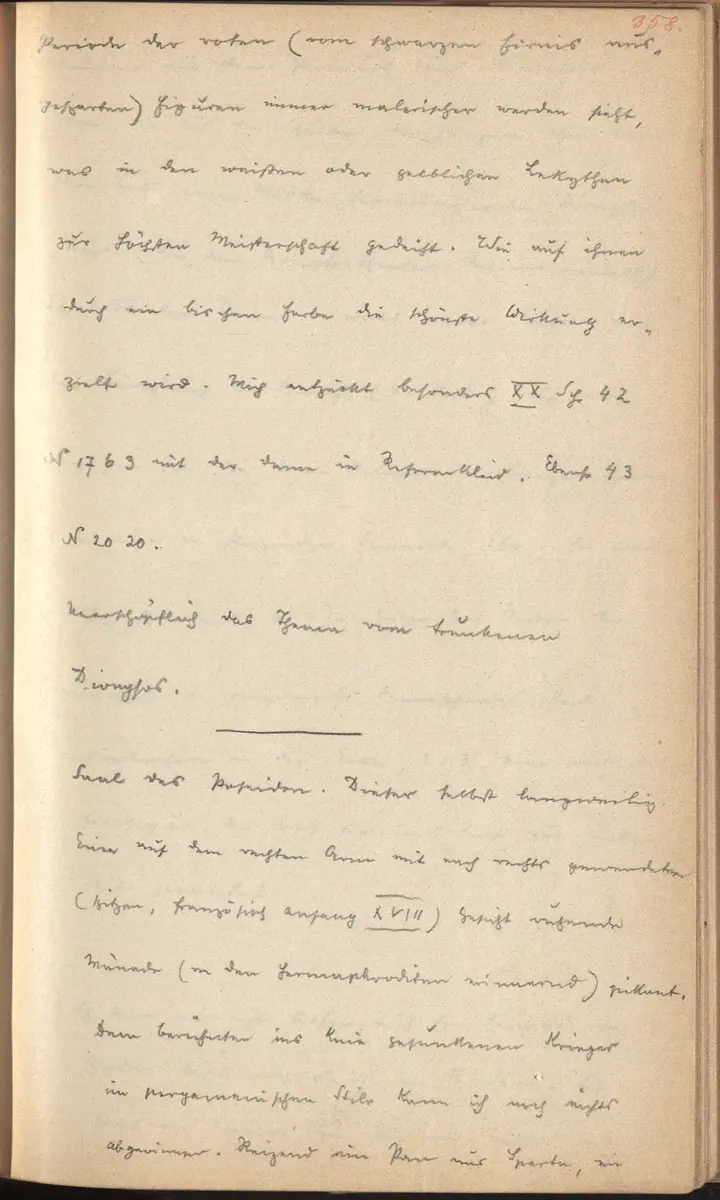 358.
Periode der roten (vom schwarzen Firnis aus-
gesparten) Figuren immer malerischer werden sieht,
was in den weißen oder gelblichen Lekythen
zur höchsten Meisterschaft gedeiht. Wie auf ihnen
durch ein bischen Farbe die schönste Wirkung er-
zielt wird. Mich entzückt besonders XX Sch 42
N 1763 mit der Dame in Reformkleid. Ebenso 43
N 2020.
Unerschöpflich das Thema vom trunkenen
Dionysos.
Saal des Poseidon. Dieser selbst langweilig.
Einer auf dem rechten Arm mit nach rechts gewendetem
(spitzen, französisch anfang XVIII) Gesicht ruhende
Mänade (an den Hermaphroditen erinnernd) pikant.
Dem berühmten ins Knie gesunkenen Krieger
im pergamenischen Stile kann ich noch nichts
abgewinnen. Reizend ein Pan aus Sparta, ein